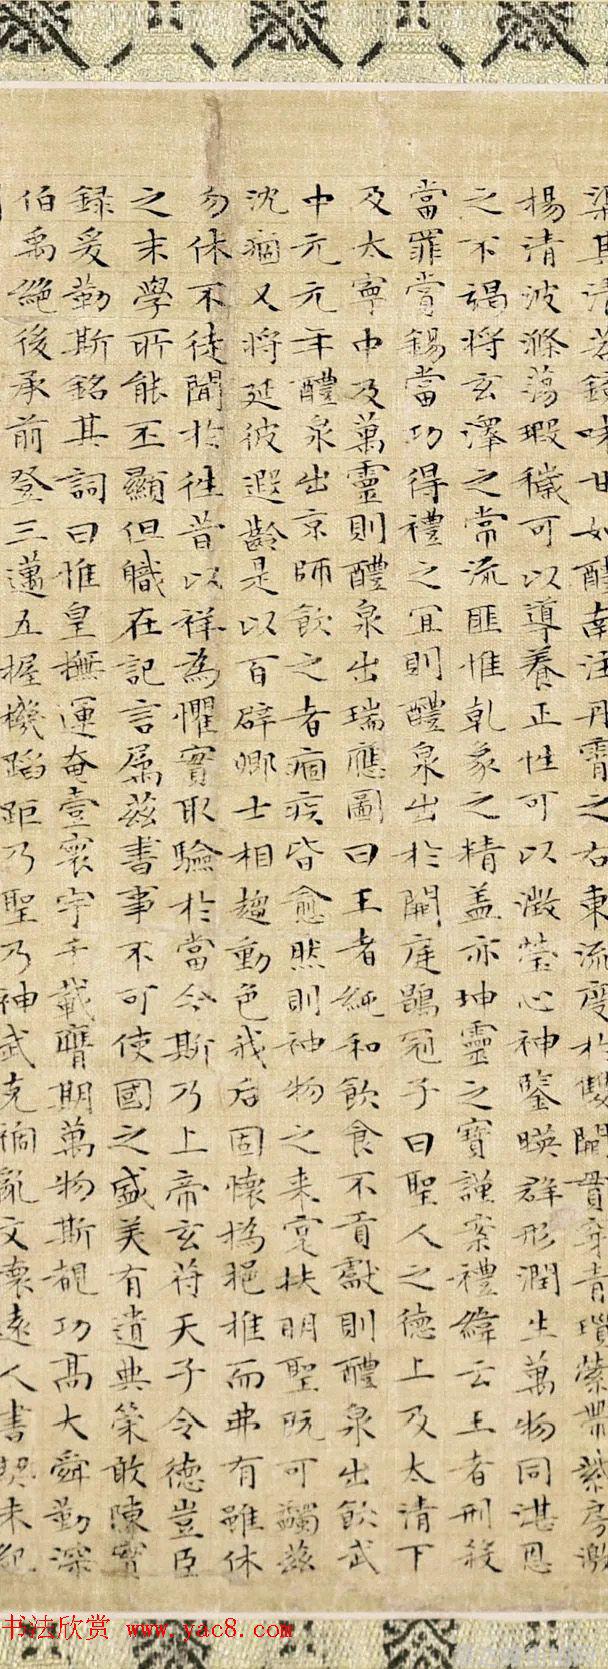 渠其清若鏡味甘如醴南注丹霄之右東流度於雙闕貫穿青瑣縈帶紫房激
楊清波滌蕩瑕穢可以導養正性可以澂瑩心神鑒暎群形潤生萬物同湛恩
之不竭將玄澤之常流匪惟乾象之精蓋亦坤靈之寶謹案禮緯云王者刑殺
當罪賞錫當功得禮之宜則醴泉出於闕庭鶡冠子曰聖人之德上及太清下
及太寧中及萬靈則醴泉出瑞應圖曰王者純和飲食不貢獻則醴泉出飲武
中元元年醴泉出京師飲之者痼疾皆愈然則神物之来寔扶明聖既可蠲茲
沈痼又將延彼遐齡是以百辟卿士相趨動色我后固懷撝挹推而弗有雖休
勿休不徒聞於往昔以祥為懼實取驗於當今斯乃上帝玄符天子令德豈臣
之末學所能丕顯但職在記言屬茲書事不可使國之盛美有遺典策敢陳實
錄爰勒斯銘其詞曰惟皇撫運奄壹寰宇千載膺期萬物斯覩功高大舜勤深
伯禹絕後承前登三邁五握機蹈距乃聖乃神武克禍亂文懷遠人書契未紀
书法欣赏 www.yac8.com